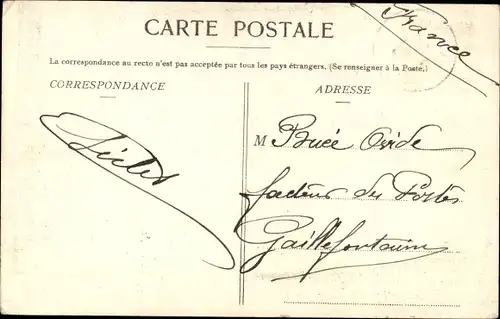 CARTE POSTALE
France
La correspondance au recto n'est pas acceptée par tous les pays étrangers. (Se renseigner à la Poste.)
CORRESPONDANCE
ADRESSE
M Buée Ovide
facteur des Postes
Gaillefontaine